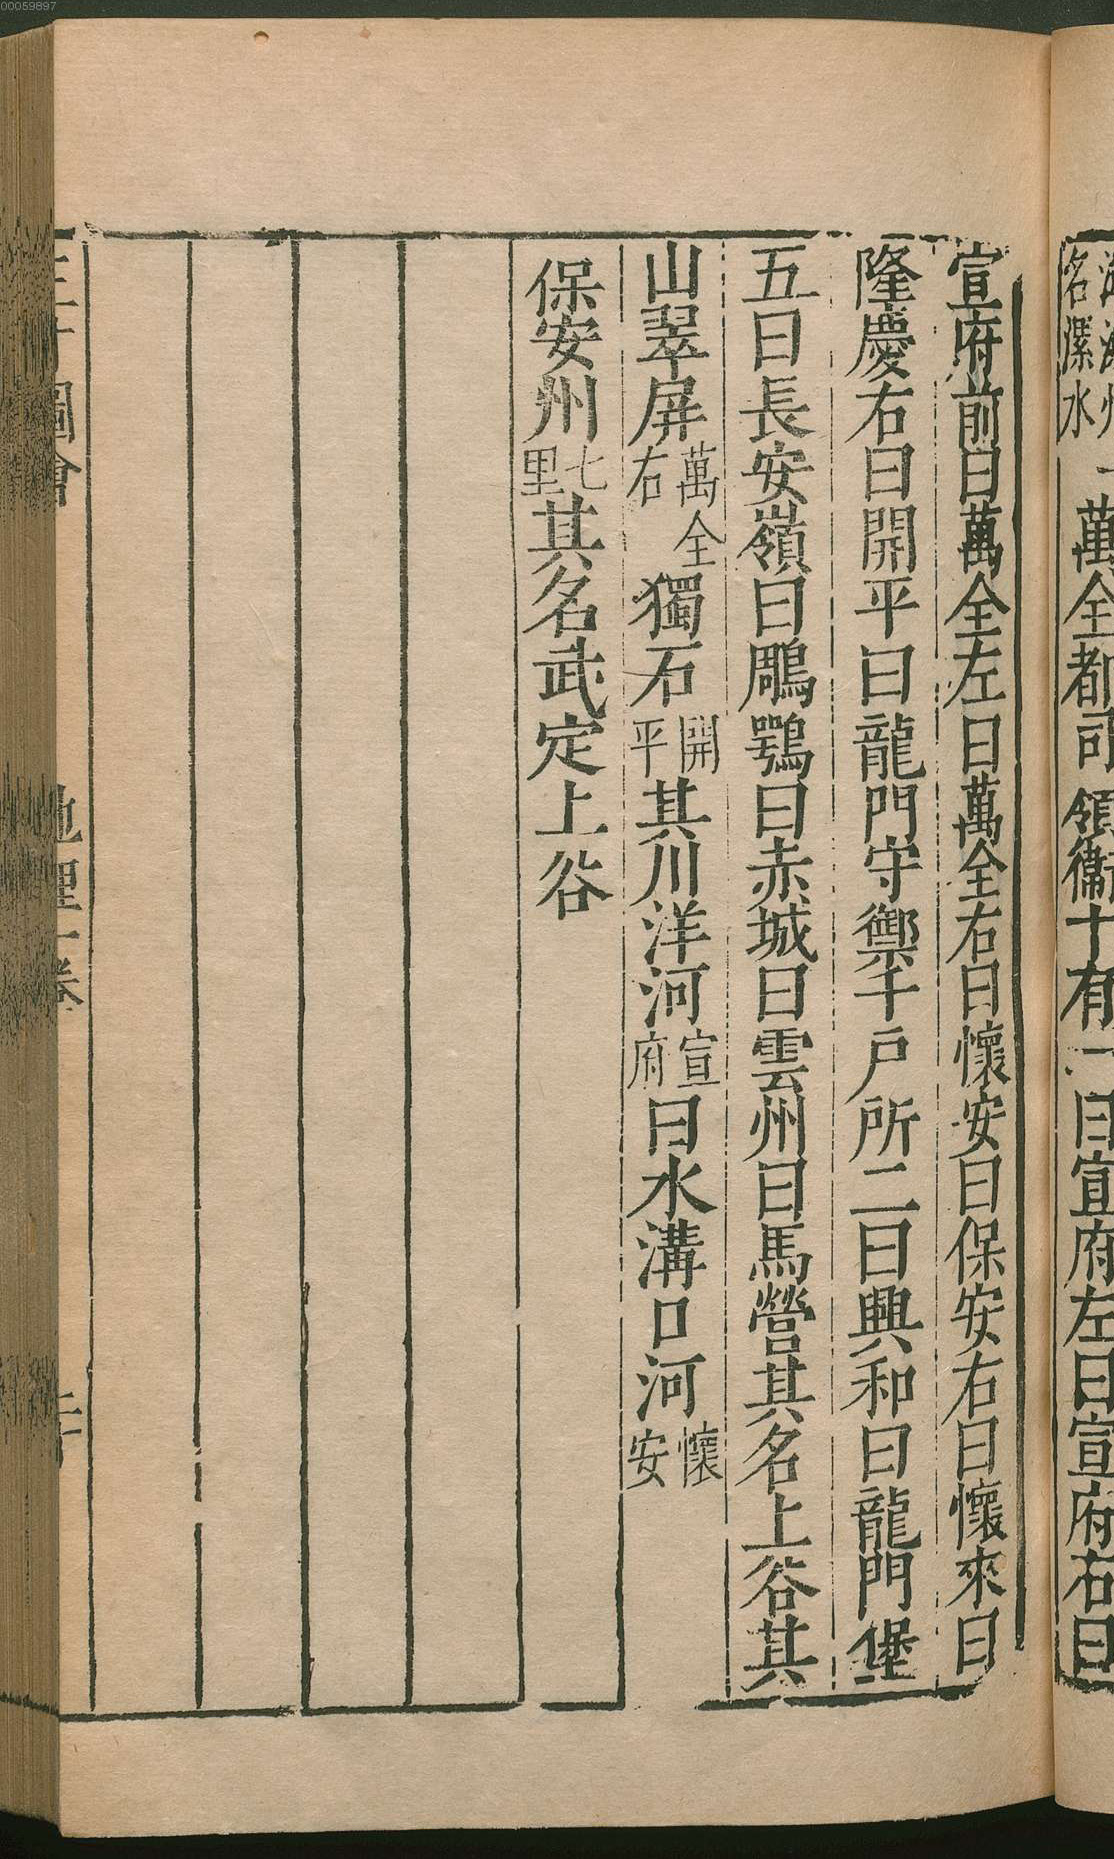 00059897
名漯水
萬全都司領衞十有一曰宣府左曰宣府右曰
宣府前曰萬全左曰萬全右曰懷安曰保安右曰懷來曰
隆慶右曰開平曰龍門守禦千戶所二曰興和曰龍門堡
五曰長安嶺曰鵰鶚曰赤城曰雲州曰馬營其名上谷其
山翠屏萬全右獨石開平其川洋河宣府曰水溝口河懷安
保安州七里其名武定上谷
圖會
地理一卷